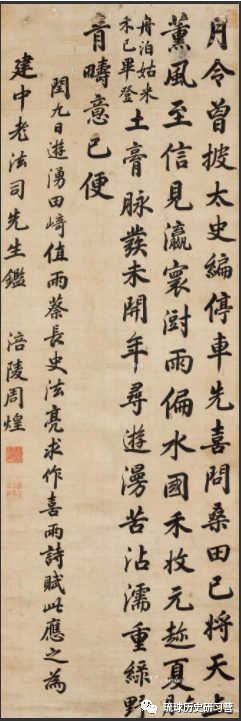 月令曾披太史編停車先喜問桑田已將天上
薰風至信見瀛寰澍雨偏水國禾收元趂夏
舟泊姑米
禾已畢登
土膏脉發未開年尋遊漫苦沾濡重綠野
青疇意已便
閏九日遊湧田崎值雨蔡長史法亮求作喜雨詩賦此應之為
建中老法司先生鑑 涪陵周煌
琉球历史研习营